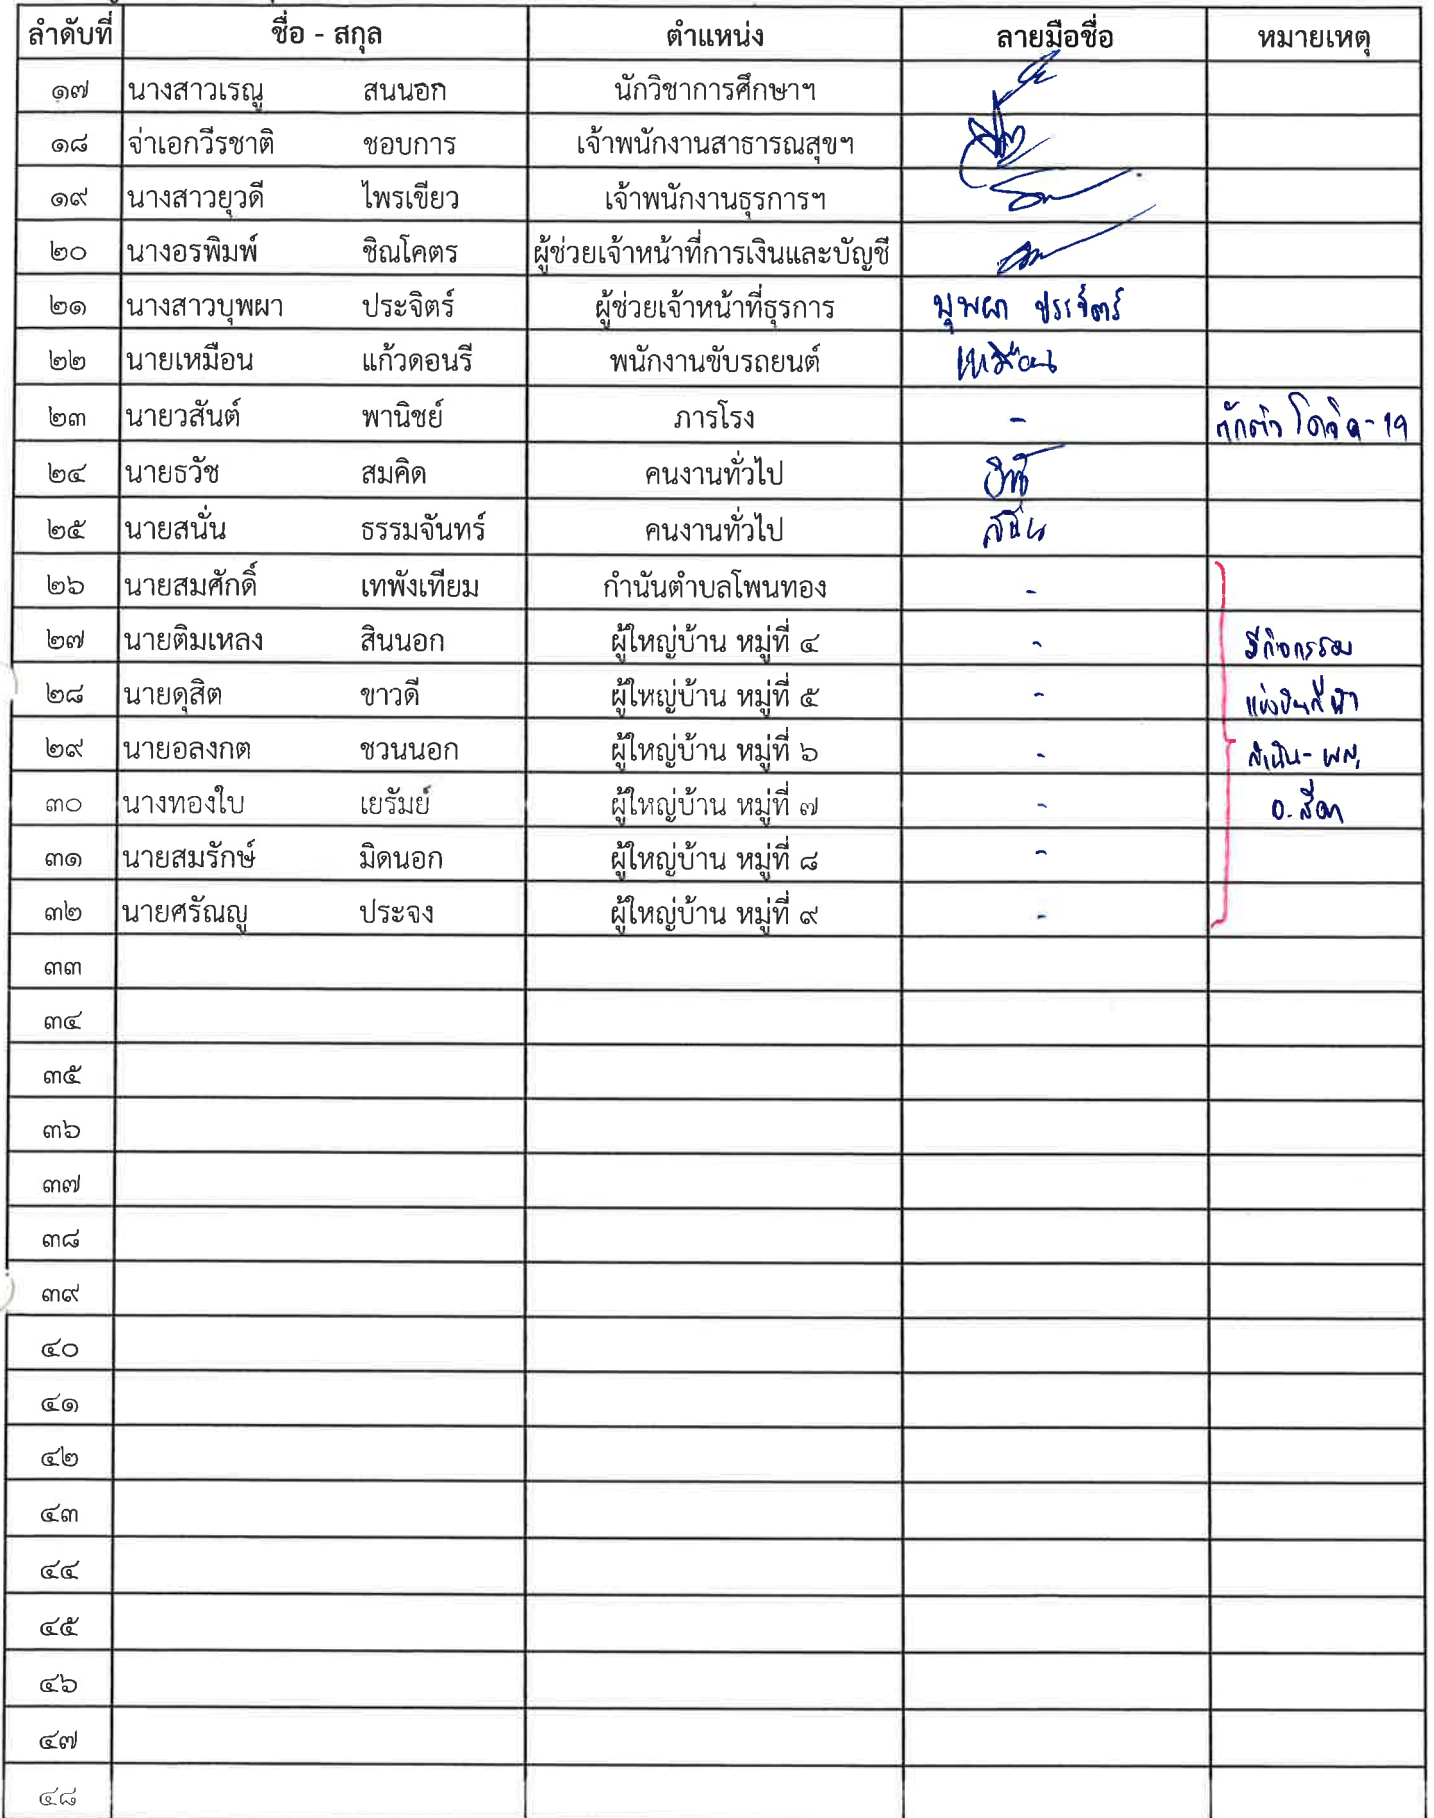 ลำดับที่ ชื่อ - สกุล ตำแหน่ง ลายมือชื่อ หมายเหตุ
๑๗ นางสาวเรณู สนนอก นักวิชาการศึกษาฯ
๑๘ จ่าเอกวีรชาติ ชอบการ เจ้าพนักงานสาธารณสุขฯ
๑๙ นางสาวยุวดี ไพรเขียว เจ้าพนักงานธุรการฯ
๒๐ นางอรพิมพ์ ชิณโคตร ผู้ช่วยเจ้าหน้าที่การเงินและบัญชี
๒๑ นางสาวบุพผา ประจิตร์ ผู้ช่วยเจ้าหน้าที่ธุรการ บุพผา ประจิตร์
๒๒ นายเหมือน แก้วดอนรี พนักงานขับรถยนต์ เหมือน
๒๓ นายวสันต์ พานิชย์ ภารโรง - กักตัว โควิด-19
๒๔ นายธวัช สมคิด คนงานทั่วไป
๒๕ นายสนั่น ธรรมจันทร์ คนงานทั่วไป สนั่น
๒๖ นายสมศักดิ์ เทพังเทียม กำนันตำบลโพนทอง -
๒๗ นายติมเหลง สินนอก ผู้ใหญ่บ้าน หมู่ที่ ๔ - มีกิจกรรม
๒๘ นายดุสิต ขาวดี ผู้ใหญ่บ้าน หมู่ที่ ๕ - แข่งขันกีฬา
๒๙ นายอลงกต ชวนนอก ผู้ใหญ่บ้าน หมู่ที่ ๖ -
๓๐ นางทองใบ เยรัมย์ ผู้ใหญ่บ้าน หมู่ที่ ๗ - อ.สีดา
๓๑ นายสมรักษ์ มิดนอก ผู้ใหญ่บ้าน หมู่ที่ ๘ -
๓๒ นายศรัณญู ประจง ผู้ใหญ่บ้าน หมู่ที่ ๙ -
๓๓
๓๔
๓๕
๓๖
๓๗
๓๘
๓๙
๔๐
๔๑
๔๒
๔๓
๔๔
๔๕
๔๖
๔๗
๔๘